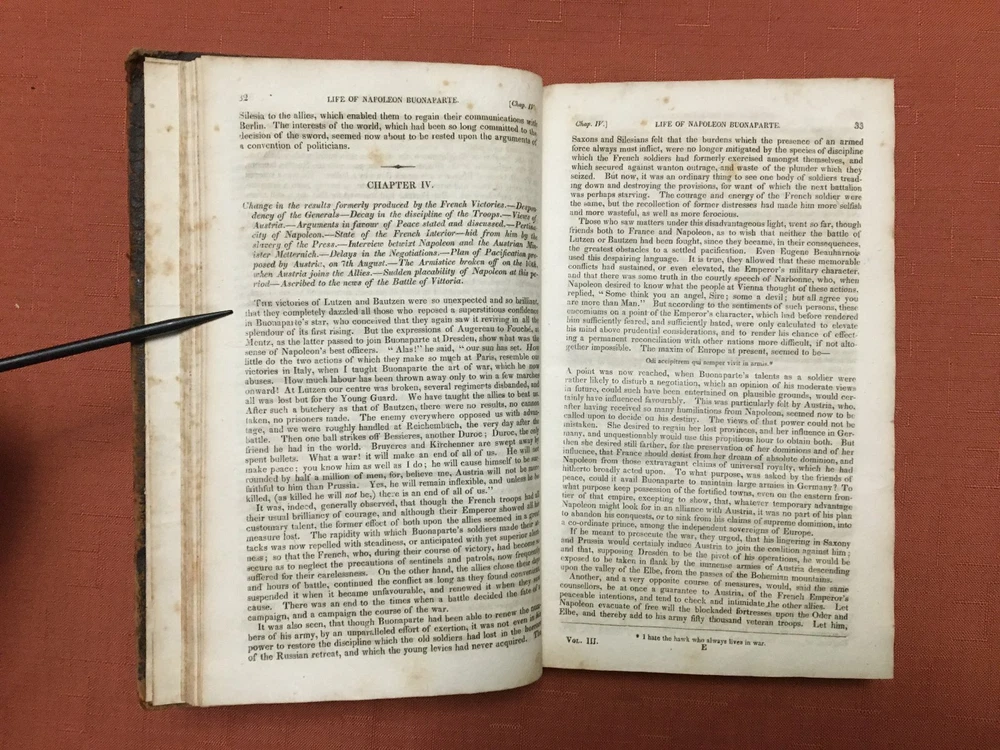 32 LIFE OF NAPOLEON BUONAPARTE. [Chap. IV.
Silesia to the allies, which enabled them to regain their communications with
Berlin. The interests of the world, which had been so long committed to the
decision of the sword, seemed now about to be rested upon the arguments of
a convention of politicians.
CHAPTER IV.
Change in the results formerly produced by the French Victories.—Despon-
dency of the Generals—Decay in the discipline of the Troops.—Views of
Austria.—Arguments in favour of Peace stated and discussed.—Pertina-
city of Napoleon.—State of the French Interior—hid from him by the
slavery of the Press.—Interview betwixt Napoleon and the Austrian Min-
ister Metternich.—Delays in the Negotiations.—Plan of Pacification pro-
posed by Austria, on 7th August.—The Armistice broken off on the 10th,
when Austria joins the Allies.—Sudden placability of Napoleon at this pe-
riod—Ascribed to the news of the Battle of Vittoria.
THE victories of Lutzen and Bautzen were so unexpected and so brilliant,
that they completely dazzled all those who reposed a superstitious confidence
in Buonaparte's star, who conceived that they again saw it reviving in all the
splendour of its first rising. But the expressions of Augereau to Fouché, at
Mentz, as the latter passed to join Buonaparte at Dresden, show what was the
sense of Napoleon's best officers. "Alas!" he said, "our sun has set. How
little do the two actions of which they make so much at Paris, resemble our
victories in Italy, when I taught Buonaparte the art of war, which he now
abuses. How much labour has been thrown away only to win a few marches
onward! At Lutzen our centre was broken, several regiments disbanded, and
all was lost but for the Young Guard. We have taught the allies to beat us.
After such a butchery as that of Bautzen, there were no results, no cannon
taken, no prisoners made. The enemy everywhere opposed us with advan-
tage, and we were roughly handled at Reichembach, the very day after the
battle. Then one ball strikes off Bessieres, another Duroc; Duroc, the only
friend he had in the world. Bruyeres and Kirchenner are swept away by
spent bullets. What a war! it will make an end of all of us. He will not
make peace; you know him as well as I do; he will cause himself to be sur-
rounded by half a million of men, for, believe me, Austria will not be more
faithful to him than Prussia. Yes, he will remain inflexible, and unless he be
killed, (as killed he will not be,) there is an end of all of us."
It was, indeed, generally observed, that though the French troops had all
their usual brilliancy of courage, and although their Emperor showed all his
customary talent, the former effect of both upon the allies seemed in a great
measure lost. The rapidity with which Buonaparte's soldiers made their at-
tacks was now repelled with steadiness, or anticipated with yet superior alert-
ness; so that the French, who, during their course of victory, had become so
secure as to neglect the precautions of sentinels and patrols, now frequently
suffered for their carelessness. On the other hand, the allies chose their days
and hours of battle, continued the conflict as long as they found convenient,
suspended it when it became unfavourable, and renewed it when they saw
cause. There was an end to the times when a battle decided the fate of a
campaign, and a campaign the course of the war.
It was also seen, that though Buonaparte had been able to renew the num-
bers of his army, by an unparalleled effort of exertion, it was not even in his
power to restore the discipline which the old soldiers had lost in the horrors
of the Russian retreat, and which the young levies had never acquired. The
Chap. IV.] LIFE OF NAPOLEON BUONAPARTE. 33
Saxons and Silesians felt that the burdens which the presence of an armed
force always must inflict, were no longer mitigated by the species of discipline
which the French soldiers had formerly exercised amongst themselves, and
which secured against wanton outrage, and waste of the plunder which they
seized. But now, it was an ordinary thing to see one body of soldiers tread-
ing down and destroying the provisions, for want of which the next battalion
was perhaps starving. The courage and energy of the French soldier were
the same, but the recollection of former distresses had made him more selfish
and more wasteful, as well as more ferocious.
Those who saw matters under this disadvantageous light, went so far, though
friends both to France and Napoleon, as to wish that neither the battle of
Lutzen or Bautzen had been fought, since they became, in their consequences,
the greatest obstacles to a settled pacification. Even Eugene Beauharnois
used this despairing language. It is true, they allowed that these memorable
conflicts had sustained, or even elevated, the Emperor's military character,
and that there was some truth in the courtly speech of Narbonne, who, when
Napoleon desired to know what the people at Vienna thought of these actions,
replied, "Some think you an angel, Sire; some a devil; but all agree you
are more than Man." But according to the sentiments of such persons, these
encomiums on a point of the Emperor's character, which had before rendered
him sufficiently feared, and sufficiently hated, were only calculated to elevate
his mind above prudential considerations, and to render his chance of effect-
ing a permanent reconciliation with other nations more difficult, if not alto-
gether impossible. The maxim of Europe at present, seemed to be—
Odi accipitrem qui semper vivit in armis.*
A point was now reached, when Buonaparte's talents as a soldier were
rather likely to disturb a negotiation, which an opinion of his moderate views
in future, could such have been entertained on plausible grounds, would cer-
tainly have influenced favourably. This was particularly felt by Austria, who,
after having received so many humiliations from Napoleon, seemed now to be
called upon to decide on his destiny. The views of that power could not be
mistaken. She desired to regain her lost provinces, and her influence in Ger-
many, and unquestionably would use this propitious hour to obtain both. But
then she desired still farther, for the preservation of her dominions and of her
influence, that France should desist from her dream of absolute dominion, and
Napoleon from those extravagant claims of universal royalty, which he had
hitherto broadly acted upon. To what purpose, was asked by the friends of
peace, could it avail Buonaparte to maintain large armies in Germany? To
what purpose keep possession of the fortified towns, even on the eastern fron-
tier of that empire, excepting to show, that, whatever temporary advantage
Napoleon might look for in an alliance with Austria, it was no part of his plan
to abandon his conquests, or to sink from his claims of supreme dominion, into
a co-ordinate prince, among the independent sovereigns of Europe.
If he meant to prosecute the war, they urged, that his lingering in Saxony
and Prussia would certainly induce Austria to join the coalition against him;
and that, supposing Dresden to be the pivot of his operations, he would be
exposed to be taken in flank by the immense armies of Austria descending
upon the valley of the Elbe, from the passes of the Bohemian mountains.
Another, and a very opposite course of measures, would, said the same
counsellors, be at once a guarantee to Austria, of the French Emperor's
peaceable intentions, and tend to check and intimidate the other allies. Let
Napoleon evacuate of free will the blockaded fortresses upon the Oder and
Elbe, and thereby add to his army fifty thousand veteran troops. Let him,
* I hate the hawk who always lives in war.
VOL. III. E